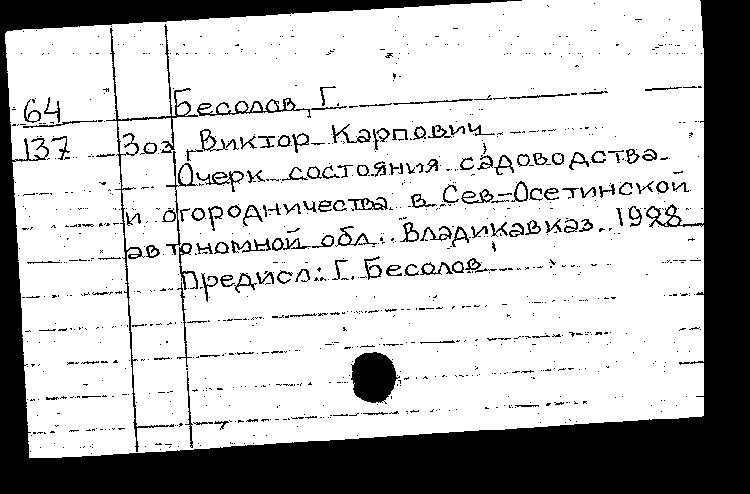 64 Бесолов, Г.
137 Зоз, Виктор Карпович,
Очерк состояния садоводства
и огородничества в Сев-Осетинской
автономной обл.. Владикавказ. 1928
Предисл.: Г. Бесолов